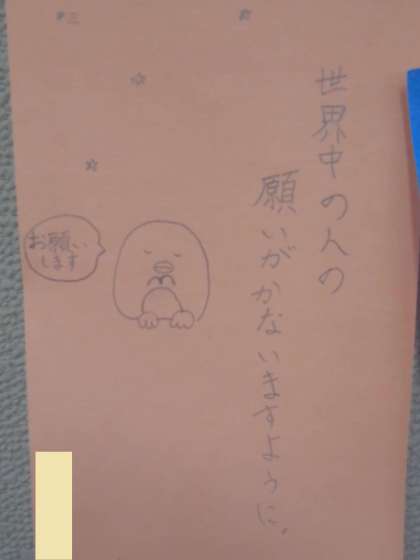 世界中の人の
願いがかないますように。
お願い
します